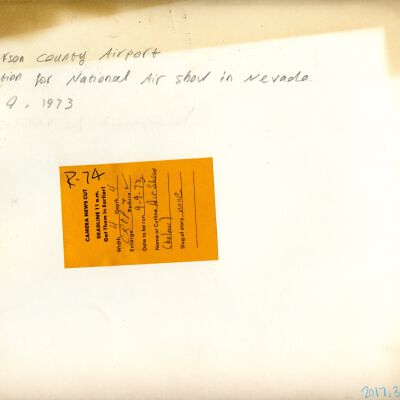 rson County Airport
tion for National Air show in Nevada.
9, 1973
P.74
CAMERA NEWS CUT
DEADLINE 11 a.m.
Get Them in Earlier!
Width 4 Depth 4
Enlarge CROP + Reduce ✓
Date to be run 9-9-73
Name or Cutline Air Show
(below)
Slug of story none
2017.3